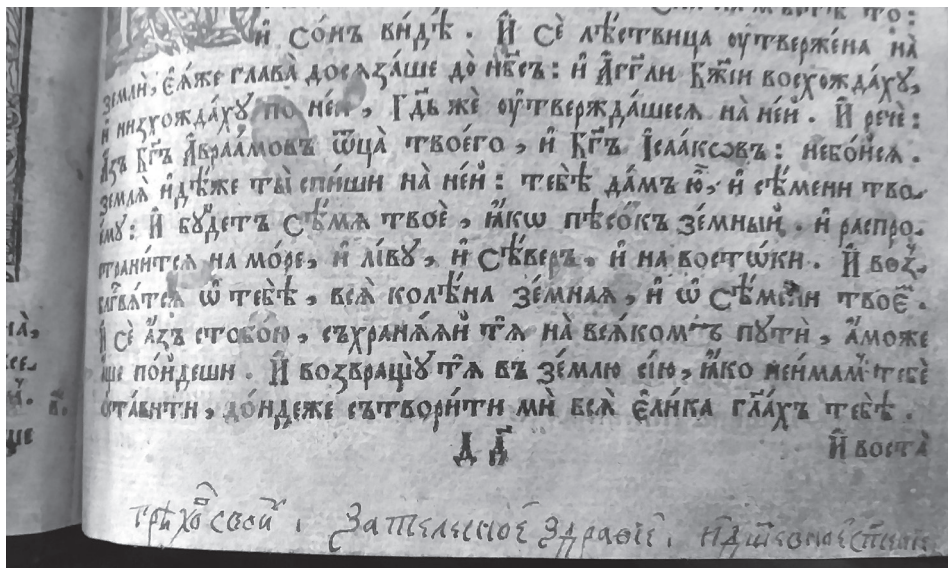 то:
и҆ со́нъ ви́дѣ . И҆ сѐ лѣ́ствица ᲂу҆твержє́на на̀
землѝ, є҆ѧ́же глава̀ досѧза́ше до̀ нб҃съ : и҆ А҆́гг҃ли бж҃їи восхожда́хꙋ,
и҆ низхожда́хꙋ по не́и , Гд҃ь жѐ ᲂу҆твержда́шесѧ на̀ не́и҆ . И҆ речѐ :
А҆́зъ Бг҃ъ А҆враа́мовъ ѿц҃а̀ твоего̀ , и҆ Бг҃ъ І҆саа́ковъ : небо́исѧ .
землѧ̀ и҆дѣ́же ты̀ спи́ши на̀ не́и҆ : тебѣ̀ да́мъ ю҆̀, и҆ сѣ́мени тво-
є҆мꙋ̀ : И҆ бꙋ́детъ сѣ́мѧ твоѐ , ꙗ҆́кѡ пѣсо́къ зе́мный . и҆ распро-
страни́тсѧ на мо́ре, и҆ лі́вꙋ , и҆ сѣ́веръ , и҆ на восто́ки . И҆ воз-
благⷭ҇вѧ́тсѧ ѡ҆ тебѣ̀ , всѧ̀ колѣ́на зе́мнаѧ , и҆ ѡ҆ сѣ́мени твоє́мъ .
И҆ сѐ а҆́зъ стобо́ю , съхранѧ́ѧй тѧ̀ на̀ всѧ́комъ пꙋтѝ , а҆́може
а҆́ще по́йдеши . И҆ возвращꙋ́ тѧ̀ въ зе́млю сїю̀, ꙗ҆́ко неи́мамъ тебѐ
ѡ҆ста́вити , до́ндеже сътвори́ти мѝ всѧ̀ є҆ли́ка гл҃ахъ тебѣ̀ .
И҆ воста̀
за телесное здравїе, и дшевное сп҃сенїе